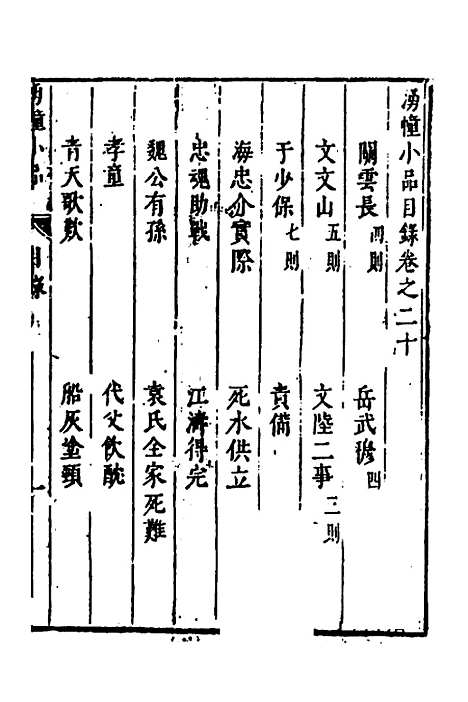 湧幢小品目錄卷之二十
關雲長四則
岳武穆四
文文山五則
文陸二事三則
于少保七則
責備
海忠介實際
死水供立
忠魂助戰
江濟得完
魏公有孫
袁氏全家死難
孝童
代父飲酖
青天歌數
船灰塗頸
湧幢小品
目錄
一